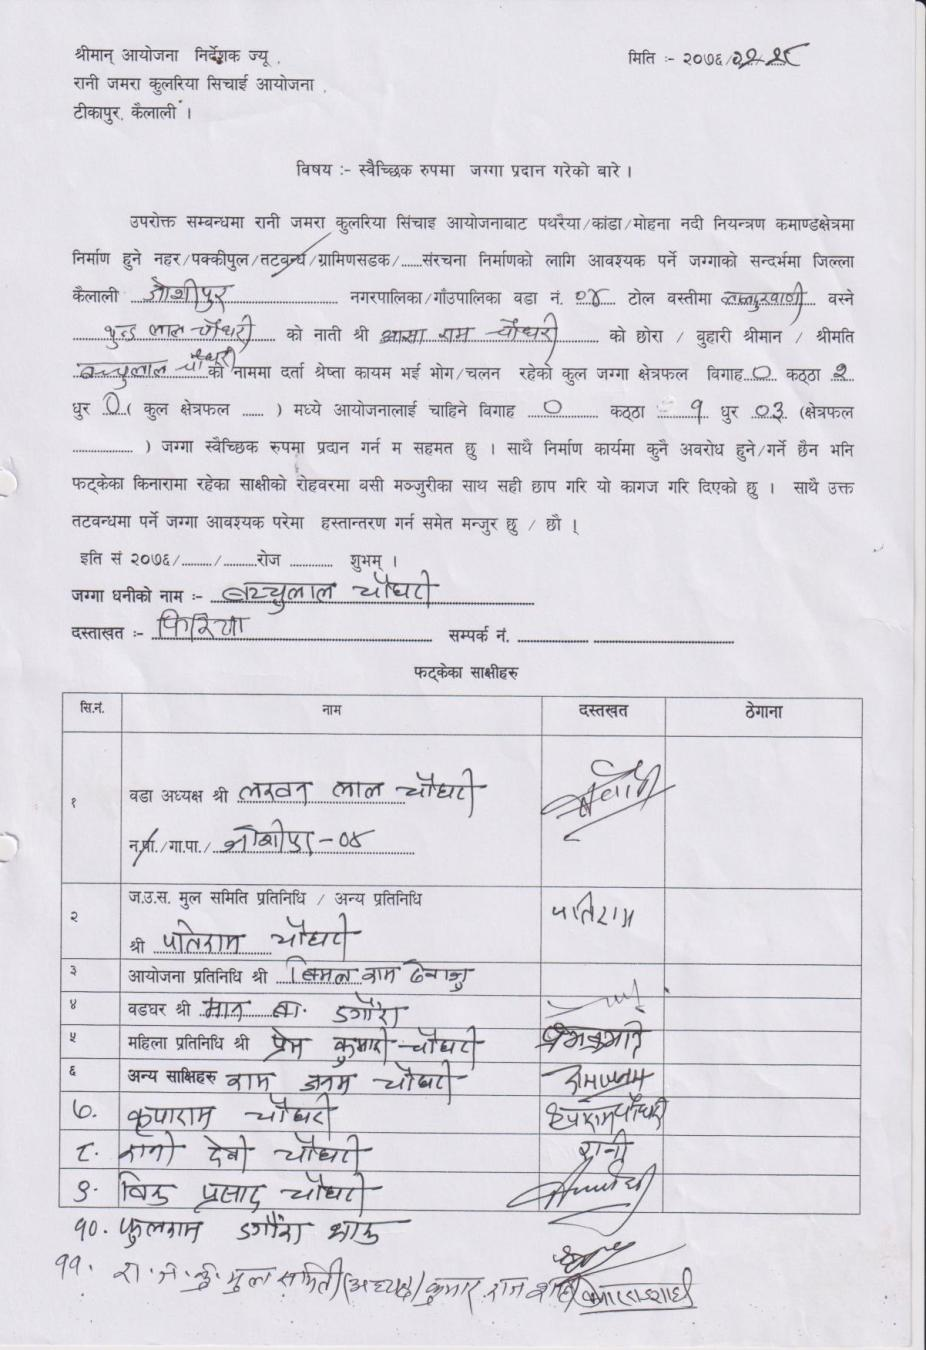 श्रीमान् आयोजना निर्देशक ज्यू ,
मिति :- २०७६/
रानी जमरा कुलरिया सिचाई आयोजना ,
टीकापुर, कैलाली ।
विषय :- स्वैच्छिक रुपमा जग्गा प्रदान गरेको बारे ।
उपरोक्त सम्बन्धमा रानी जमरा कुलरिया सिंचाइ आयोजनाबाट पथरैया/कांडा/मोहना नदी नियन्त्रण कमाण्डक्षेत्रमा
निर्माण हुने नहर/पक्कीपुल/तटबन्ध/ग्रामिणसडक/......संरचना निर्माणको लागि आवश्यक पर्ने जग्गाको सन्दर्भमा जिल्ला
कैलाली जोशीपुर नगरपालिका/गाँउपालिका वडा नं. ०४ टोल वस्तीमा वस्ने
लाल चौधरी को नाती श्री आसा राम चौधरी को छोरा / बुहारी श्रीमान / श्रीमति
बच्चुलाल चौधरी को नाममा दर्ता श्रेष्ता कायम भई भोग/चलन रहेको कुल जग्गा क्षेत्रफल विगाह 0 कठ्ठा २
धुर 0 ( कुल क्षेत्रफल ...... ) मध्ये आयोजनालाई चाहिने विगाह 0 कठ्ठा १ धुर ०३ (क्षेत्रफल
.................. ) जग्गा स्वैच्छिक रुपमा प्रदान गर्न म सहमत छु । साथै निर्माण कार्यमा कुनै अवरोध हुने/गर्ने छैन भनि
फट्केका किनारामा रहेका साक्षीको रोहवरमा वसी मञ्जुरीका साथ सही छाप गरि यो कागज गरि दिएको छु । साथै उक्त
तटवन्धमा पर्ने जग्गा आवश्यक परेमा हस्तान्तरण गर्न समेत मन्जुर छु / छौ ।
इति सं २०७६/........./..........रोज ............. शुभम् ।
जग्गा धनीको नाम :- बच्चुलाल चौधरी
दस्ताखत :- फिरिया सम्पर्क नं. ......................
फट्केका साक्षीहरु
सि.नं. नाम दस्तखत ठेगाना
१ वडा अध्यक्ष श्री लखन लाल चौधरी
न.पा./गा.पा./ जोशीपुर-०४
२ ज.उ.स. मुल समिति प्रतिनिधि / अन्य प्रतिनिधि
श्री पतिराम चौधरी पतिराम
३ आयोजना प्रतिनिधि श्री बिमल राम
४ वडघर श्री मान ब. डगौरा
५ महिला प्रतिनिधि श्री प्रेम कुमारी चौधरी
६ अन्य साक्षिहरु राम जनम चौधरी रामजनम
७. कृपाराम चौधरी कृपाराम चौधरी
८. रानी देवी चौधरी रानी
९. प्रसाद चौधरी
१०. फुलराम डगौरा थारु
११. रा.ज.कु. मुल समिती (अध्यक्ष) कुमार राज शाही